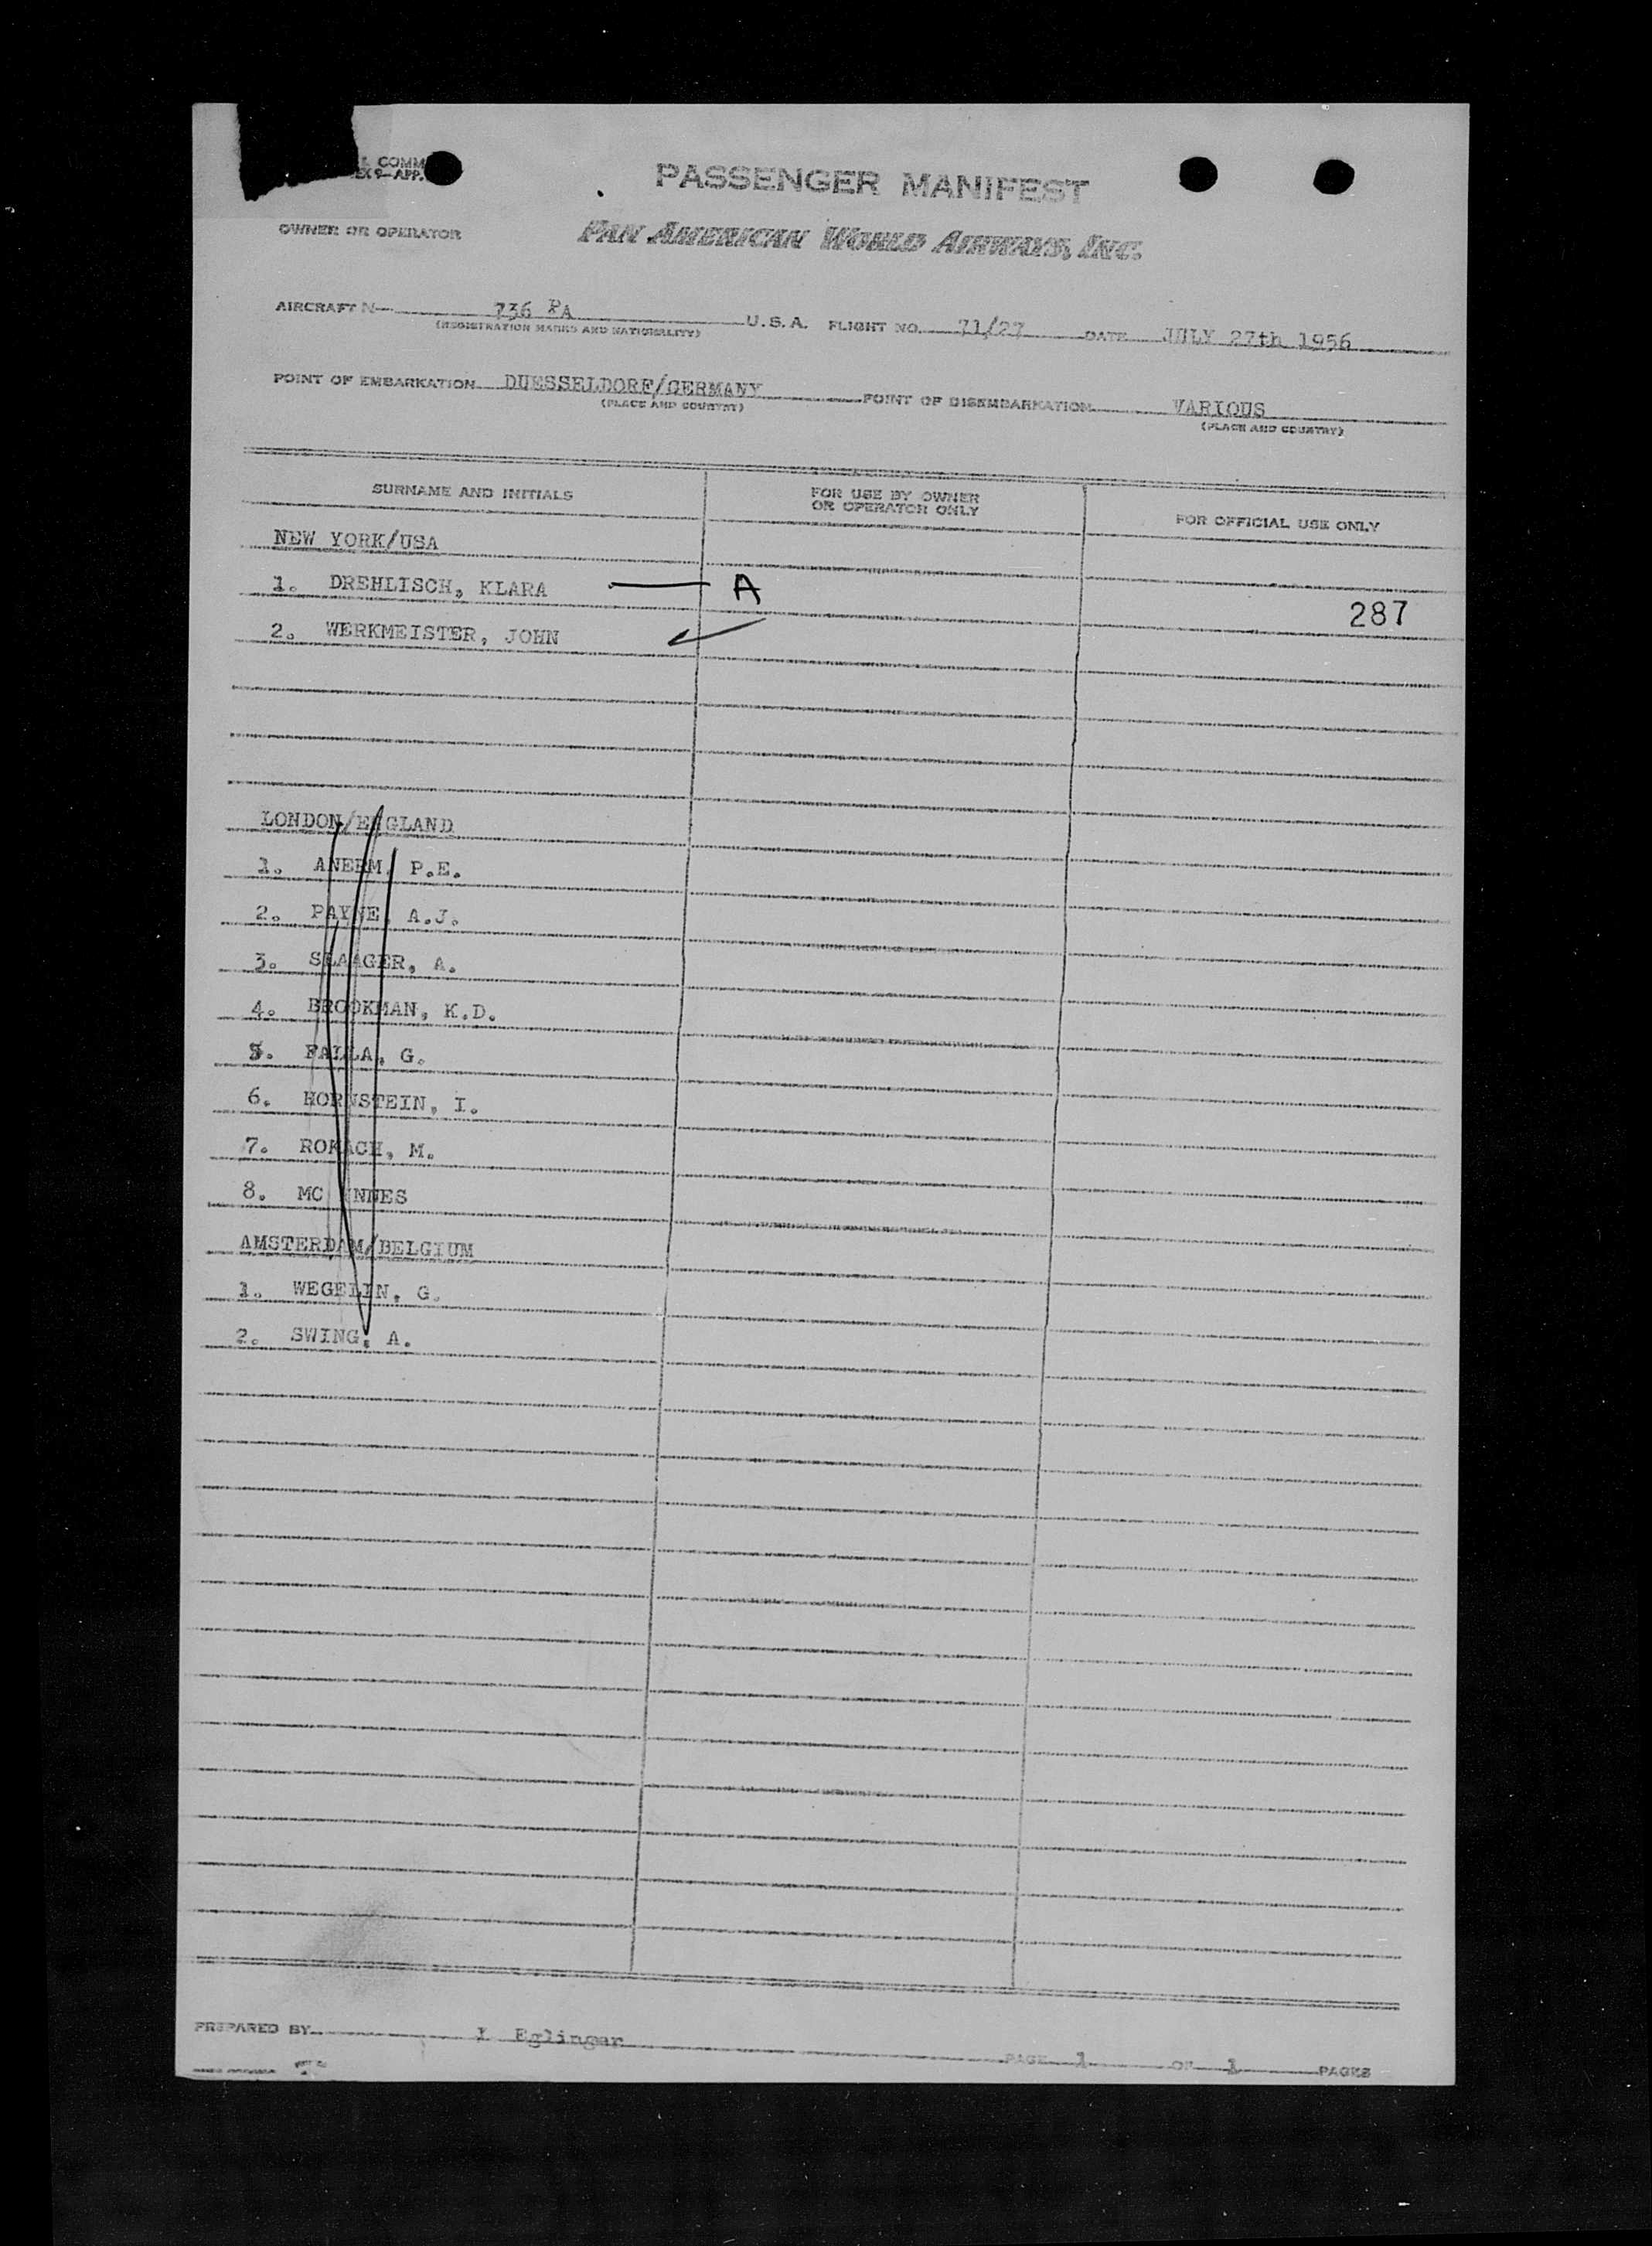 L COMM
EX 9-APP.
PASSENGER MANIFEST
OWNER OR OPERATOR PAN AMERICAN WORLD AIRWAYS, INC.
AIRCRAFT N 736 PA U.S.A. FLIGHT NO. 71/27 DATE JULY 27th 1956
(REGISTRATION MARKS AND NATIONALITY)
POINT OF EMBARKATION DUESSELDORF/GERMANY POINT OF DISEMBARKATION VARIOUS
(PLACE AND COUNTRY) (PLACE AND COUNTRY)
SURNAME AND INITIALS FOR USE BY OWNER OR OPERATOR ONLY FOR OFFICIAL USE ONLY
NEW YORK/USA
1. DREHLISCH, KLARA — A
287
2. WERKMEISTER, JOHN
LONDON/ENGLAND
1. ANERM, P.E.
2. PAYNE, A.J.
3. A.
4. BROOKMAN, K.D.
5. FALLA, G.
6. HORNSTEIN, I.
7. ROKACH, M.
8. MC INNES
AMSTERDAM/BELGIUM
1. WEGELIN, G.
2. SWING, A.
PREPARED BY I Eglinger
PAGE 1 OF 1 PAGES